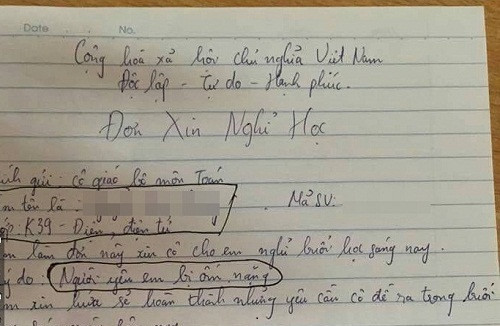 Date No.
Cộng hoà xã hôi chủ nghĩa Việt Nam
Độc lập - Tự do - Hạnh phúc.
Đơn Xin Nghỉ Học
gửi: cô giáo bộ môn Toán
tên là: Mã SV:
K39 - Điện, điện tử
làm đơn này xin cô cho em nghỉ buổi học sáng nay.
do: Người yêu em bị ốm nặng
xin hứa sẽ hoàn thành những yêu cầu cô đề ra trong buổi